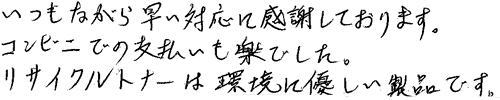 いつもながら早い対応に感謝しております。
コンビニでの支払いも楽でした。
リサイクルトナーは環境に優しい製品です。